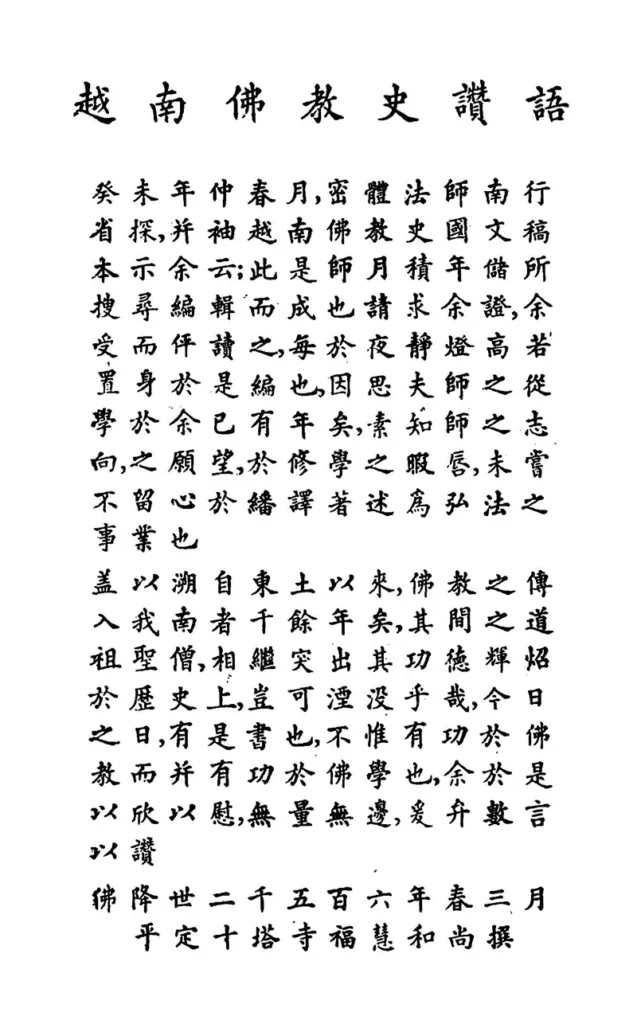 越南佛教史讚語
癸未年仲春月,密體法師南行
省探,并袖越南佛教史國文稿
本示余云;此是師月積年儲所
搜尋編輯而成也請求余證,余
受而伻讀之,每於夜靜燈高若
置身於是編也,因思夫師之從
學於余已有年矣,素知師之志
向,之願望,於修學之暇唇,未嘗
不留心於繙譯著述爲弘法之
事業也
盖以溯自東土以來,佛教之傳
入我南者千餘年矣,其間之道
祖聖僧,相繼突出其功德輝炤
於歷史上,豈可湮没乎哉,今日
之日,有是書也,不惟有功於佛
教而并有功於佛學也,余於是
以欣以慰,無量無邊,爰弁數言
以讚
佛降世二千五百六年春三月
平定十塔寺福慧和尚撰